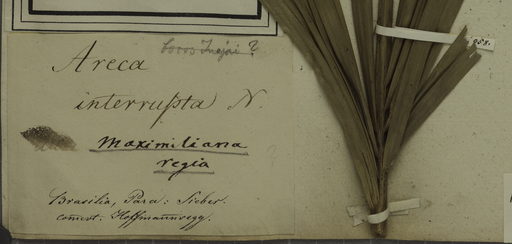 Cocos Inajai ?
Areca
interrupta N.
Maximiliana
regia
Brasilia, Para: Sieber.
comm. Hoffmannsegg.
908.